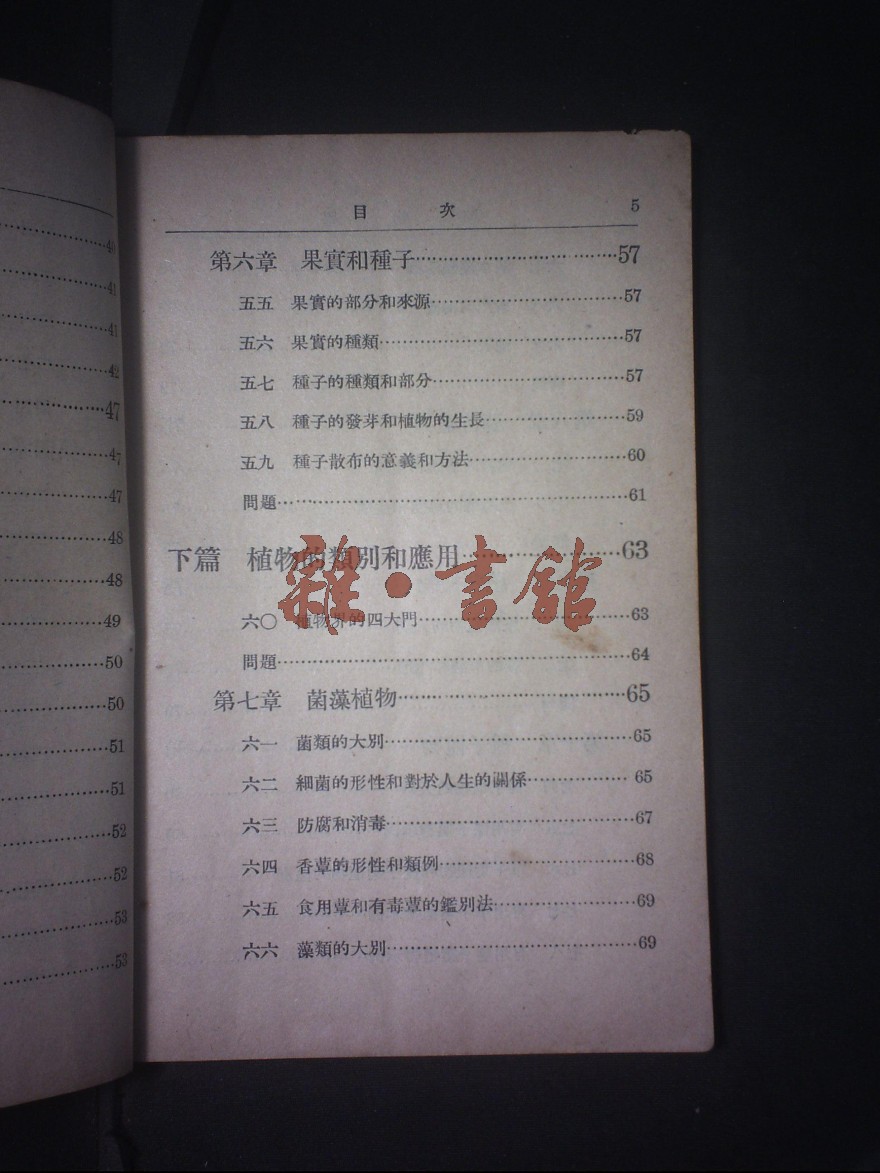 40
41
41
42
47
47
47
48
48
49
50
50
51
51
52
52
53
53
目 次 5
第六章 果實和種子……57
五五 果實的部分和來源……57
五六 果實的種類……57
五七 種子的種類和部分……57
五八 種子的發芽和植物的生長……59
五九 種子散布的意義和方法……60
問題……61
下篇 植物的類別和應用……63
六〇 植物界的四大門……63
問題……64
第七章 菌藻植物……65
六一 菌類的大別……65
六二 細菌的形性和對於人生的關係……65
六三 防腐和消毒……67
六四 香蕈的形性和類例……68
六五 食用蕈和有毒蕈的鑑別法……69
六六 藻類的大別……69
雜·書館